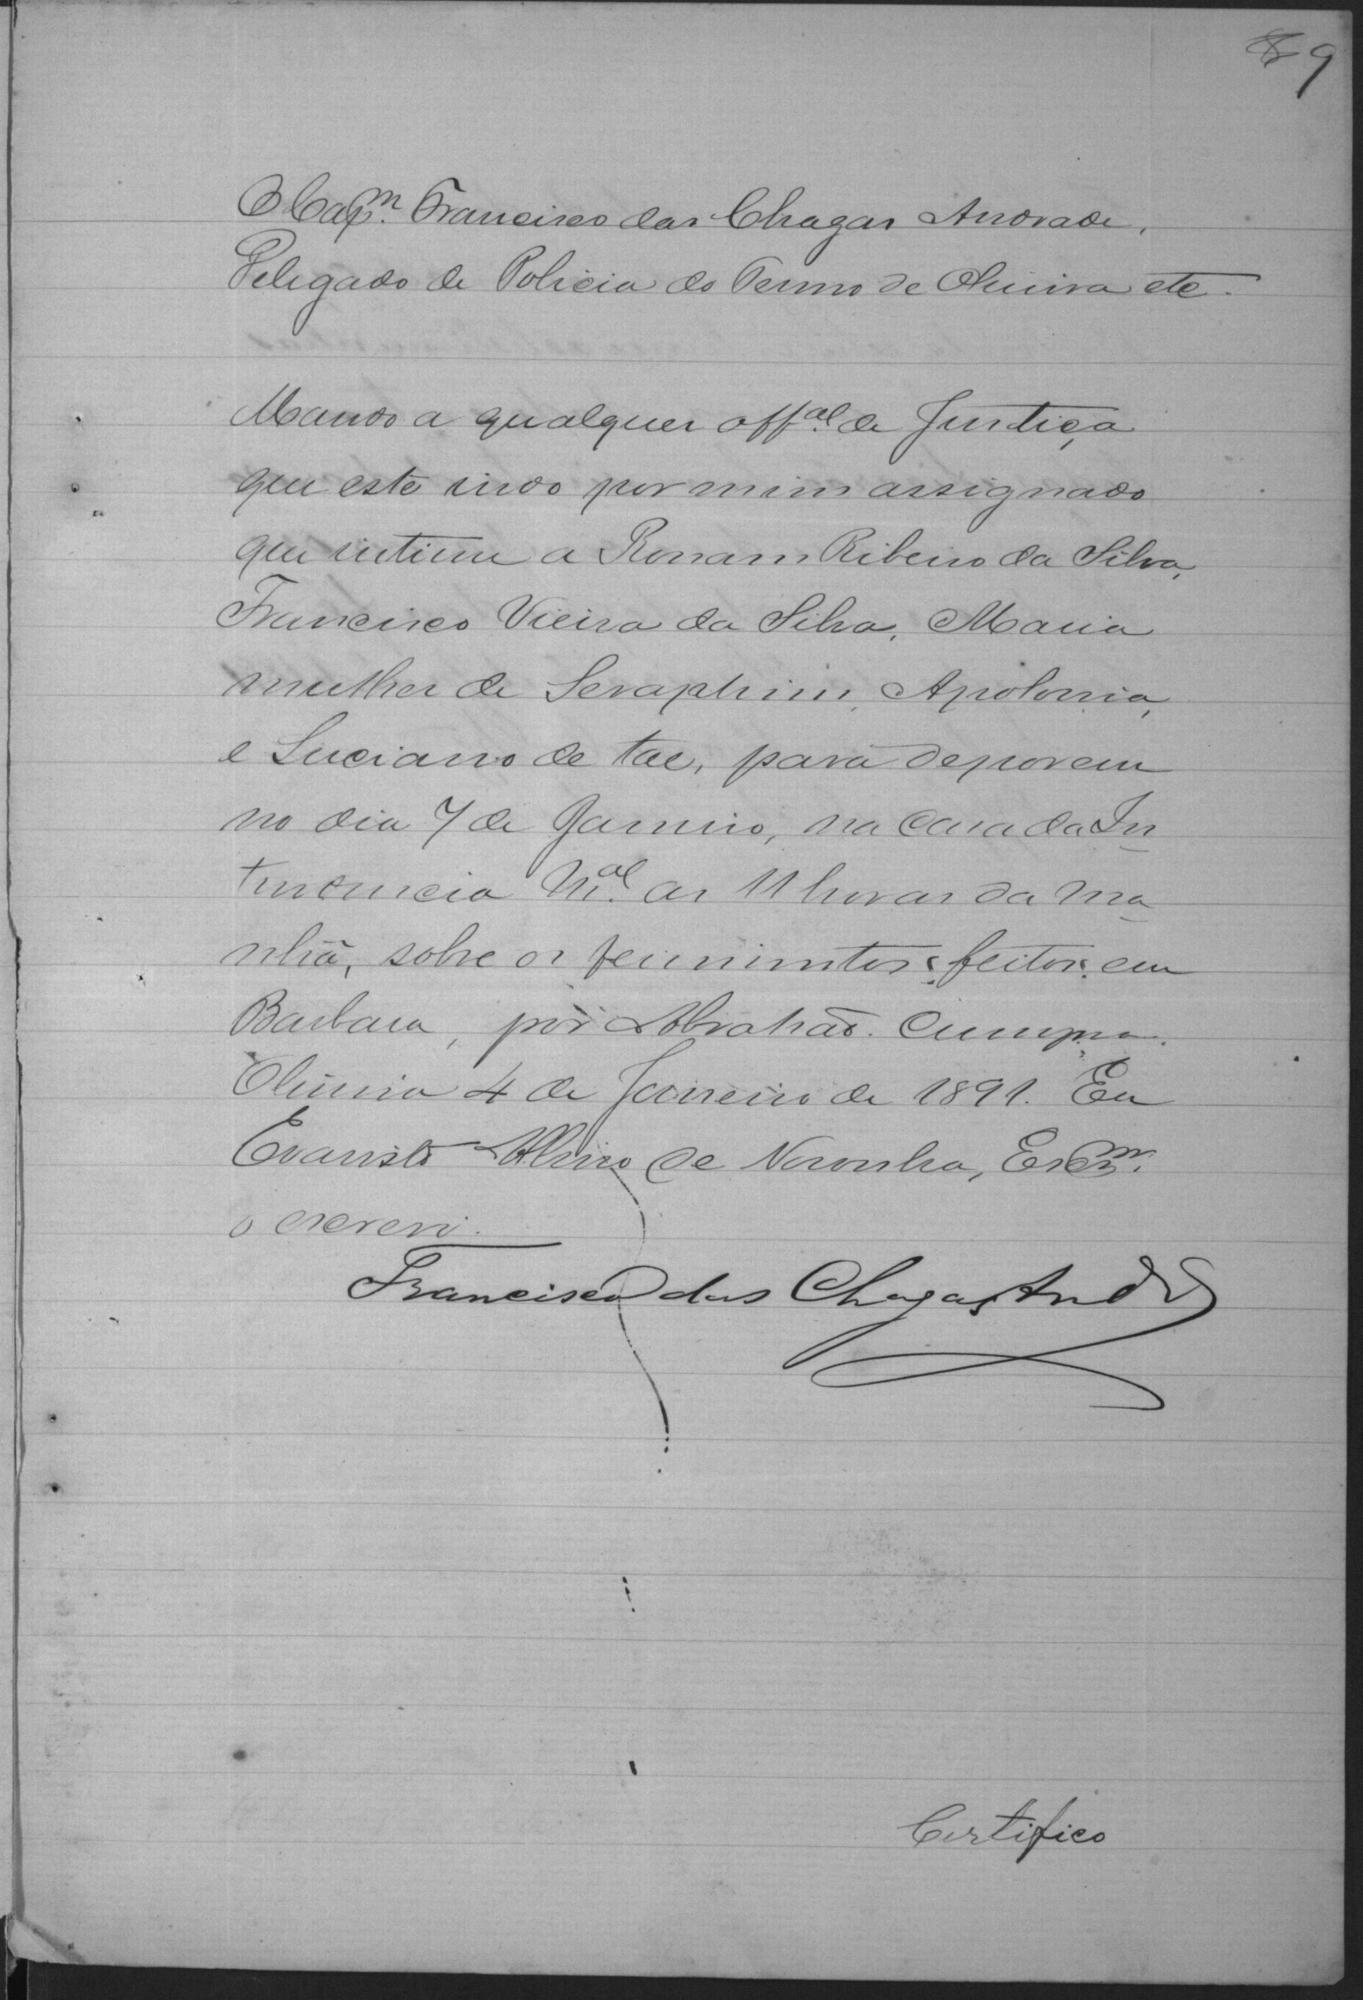 89
O Capm. Francisco das Chagas Andrade,
Delegado de Policia do Termo de Oliveira etc.
Mando a qualquer offal. de Justiça
que este indo por mim assignado
que intime a Ronam Ribeiro da Silva,
Francisco Vieira da Silva, Maria
mulher de Seraphim, Apolonia,
e Luciano de tal, para deporem
no dia 7 de Janeiro, na casa da In
tendencia Mal. as 11 horas da ma
nhã, sobre os ferimentos feitos em
Barbara, por Abrahão. Cumpra.
Oliveira 4 de Janeiro de 1891. Eu
Evaristo de Noronha, Escm.
o escrevi.
Francisco das Chagas Andr
Certifico